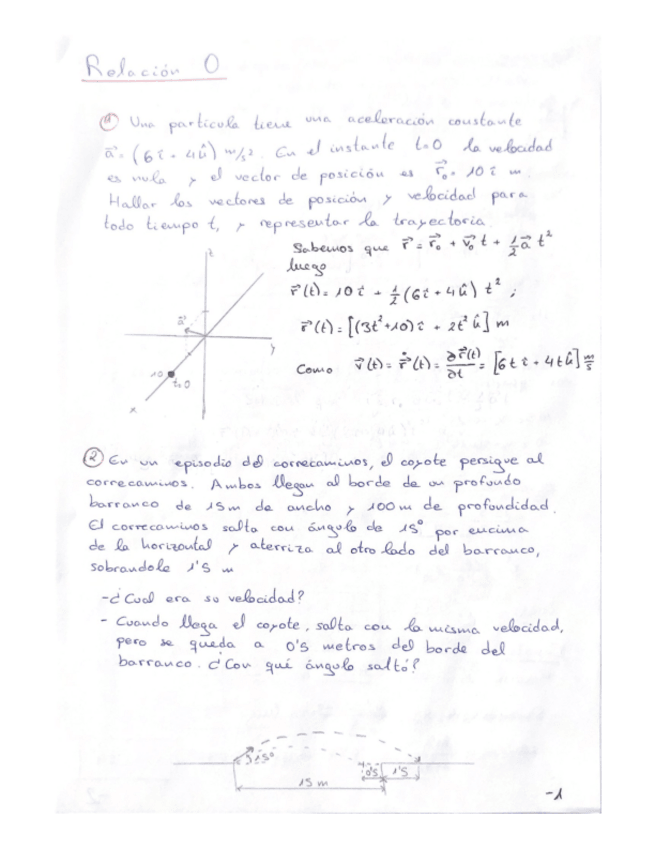 Relación 0
① Una partícula tiene una aceleración constante
a⃗ = (6î + 4k̂) m/s². En el instante t=0 la velocidad
es nula y el vector de posición es r⃗₀ = 10 î m.
Hallar los vectores de posición y velocidad para
todo tiempo t, y representar la trayectoria.
Sabemos que r⃗ = r⃗₀ + v⃗₀ t + ½ a⃗ t²
luego
r⃗(t) = 10 î + ½ (6î + 4k̂) t² ;
r⃗(t) = [(3t²+10) î + 2t² k̂] m
Como v⃗(t) = ṙ⃗(t) = ∂r⃗(t)/∂t = [6t î + 4t k̂] m/s
z
a⃗
y
10
t=0
x
② En un episodio del correcaminos, el coyote persigue al
correcaminos. Ambos llegan al borde de un profundo
barranco de 15m de ancho y 100m de profundidad.
El correcaminos salta con ángulo de 15° por encima
de la horizontal y aterriza al otro lado del barranco,
sobrandole 1'5 m
-¿Cual era su velocidad?
- Cuando llega el coyote, salta con la misma velocidad,
pero se queda a 0'5 metros del borde del
barranco. ¿Con qué ángulo saltó?
15°
0'5 1'5
15 m
-1